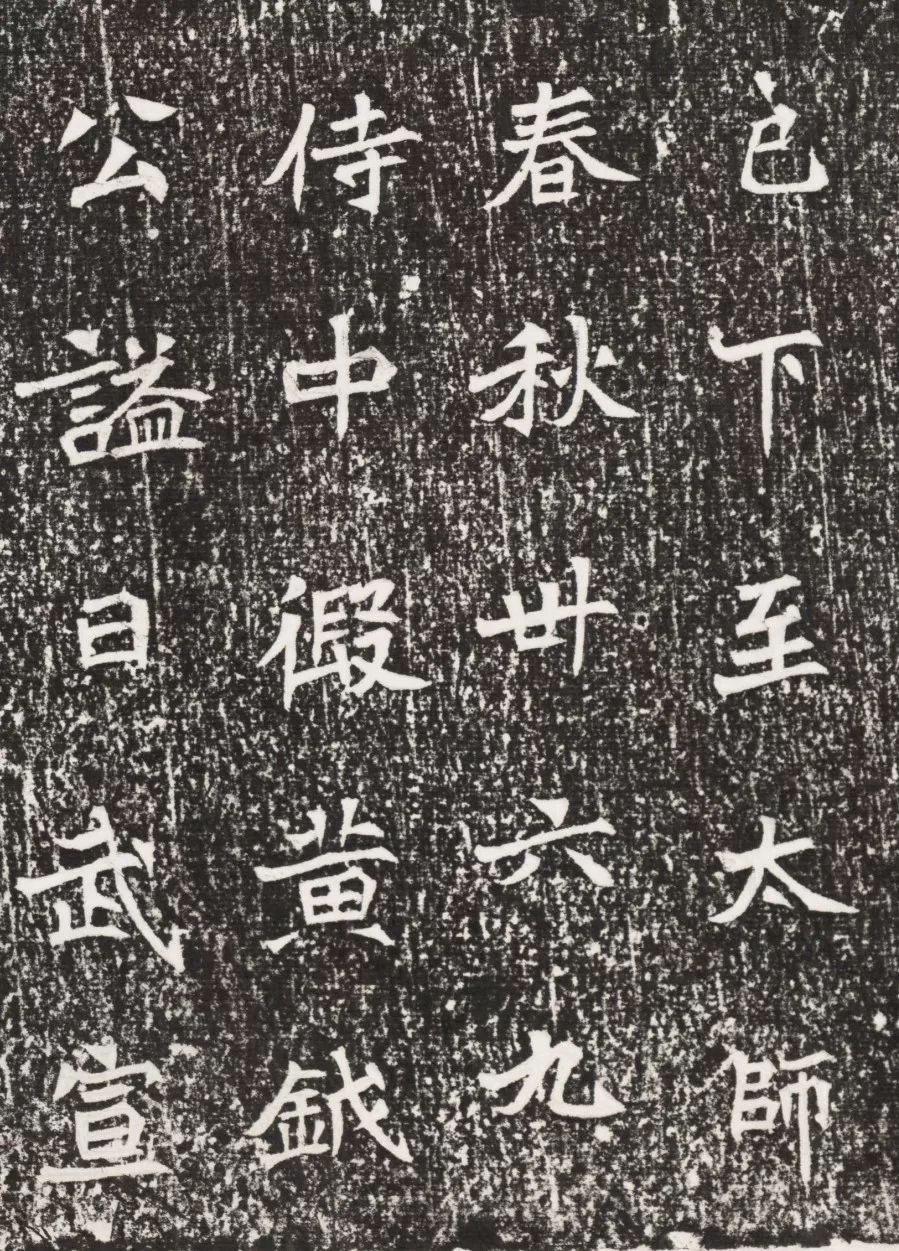 已下至太師
春秋卅六九
侍中假黃鉞
公謚曰武宣